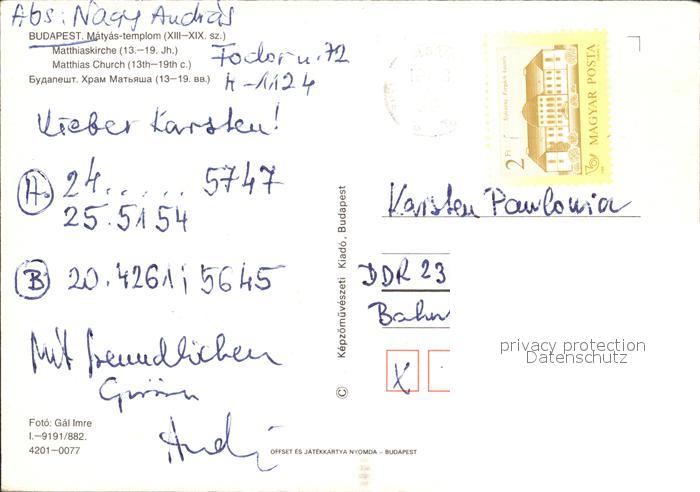 Abs: Nagy András
BUDAPEST. Mátyás-templom (XIII–XIX. sz.)
Matthiaskirche (13.–19. Jh.)
Matthias Church (13th–19th c.)
Будапешт. Храм Матьяша (13–19. вв.)
Fodor u. 72
H-1124
Lieber Karsten!
A 24. . . . . . 5747
25.5154
B 20.4261; 5645
Mit freundlichen
Grüssen
Andi
Fotó: Gál Imre
I.–9191/882.
4201–0077
OFFSET ÉS JÁTÉKKÁRTYA NYOMDA – BUDAPEST
© Képzőművészeti Kiadó, Budapest
2 Ft
MAGYAR POSTA
Karsten Pawlowia
DDR 23
Bahn
X
privacy protection
Datenschutz